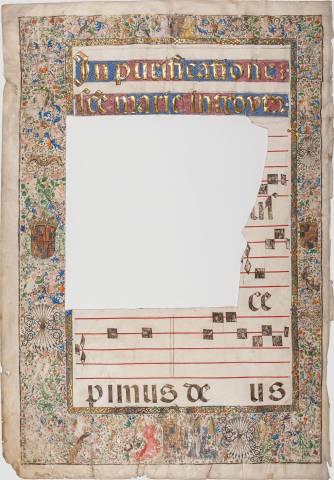 In purificatione
sce marie
ce
pimus de us